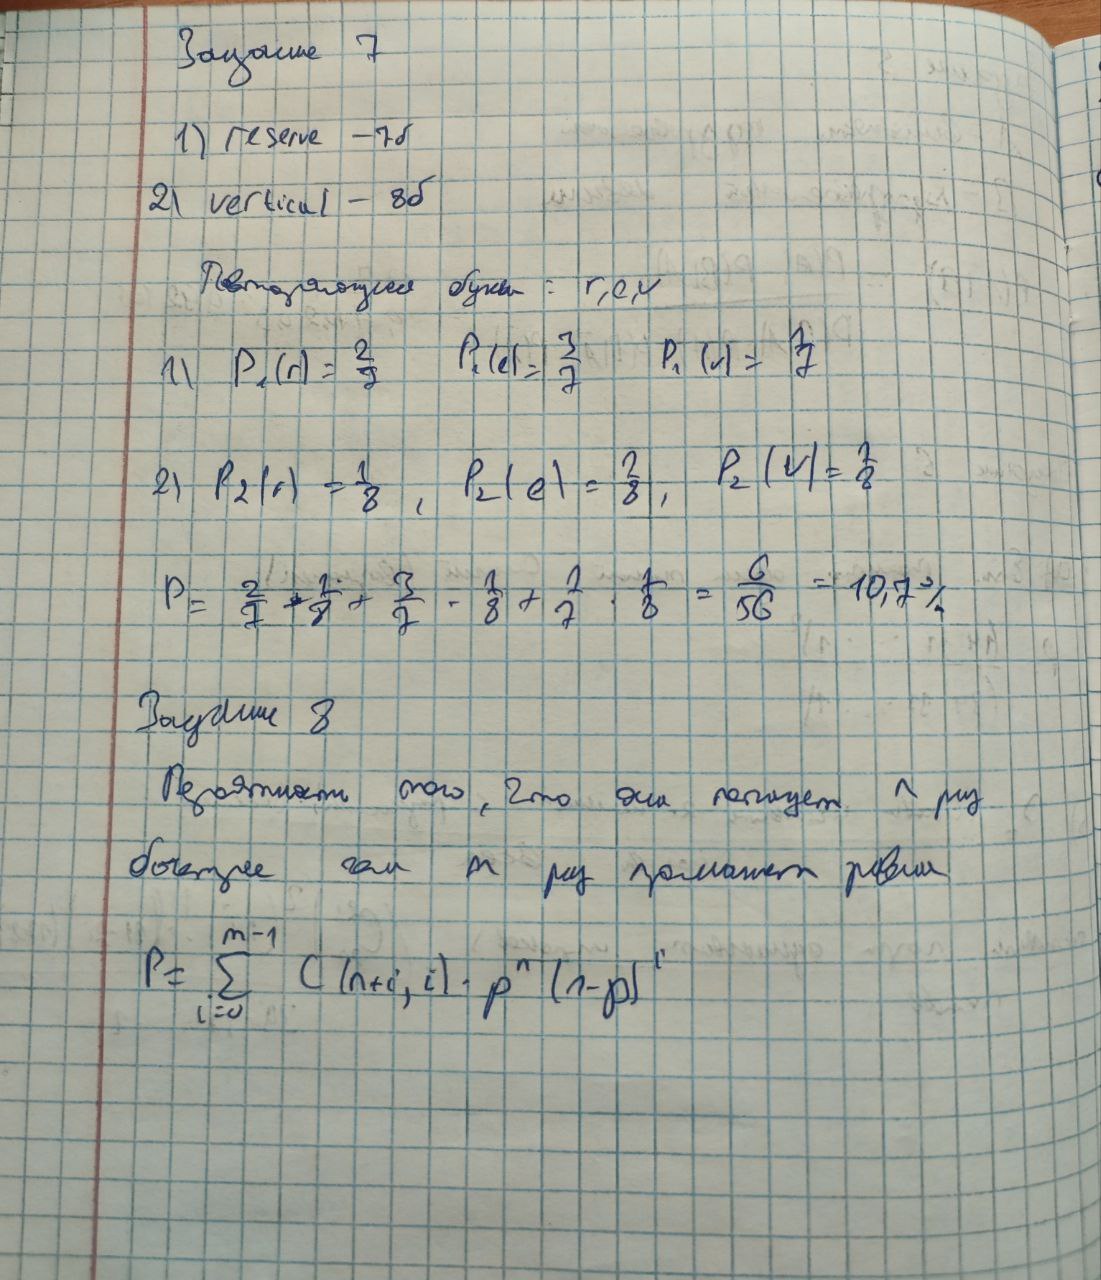 Задание 7
1) reserve – 7б
2) vertical – 8б
Повторяющиеся буквы: r, e, v
1) P₁(r) = 2/7 P₁(e) = 3/7 P₁(v) = 1/7
2) P₂(r) = 1/8, P₂(e) = 1/8, P₂(v) = 1/8
P = 2/7 · 1/8 + 3/7 · 1/8 + 1/7 · 1/8 = 6/56 = 10,7%
Задание 8
Вероятность того, что она попадет n раз
быстрее чем m раз промажет равна
P = ∑ᵢ₌₀ᵐ⁻¹ C(n+i, i) · pⁿ (1-p)ⁱ